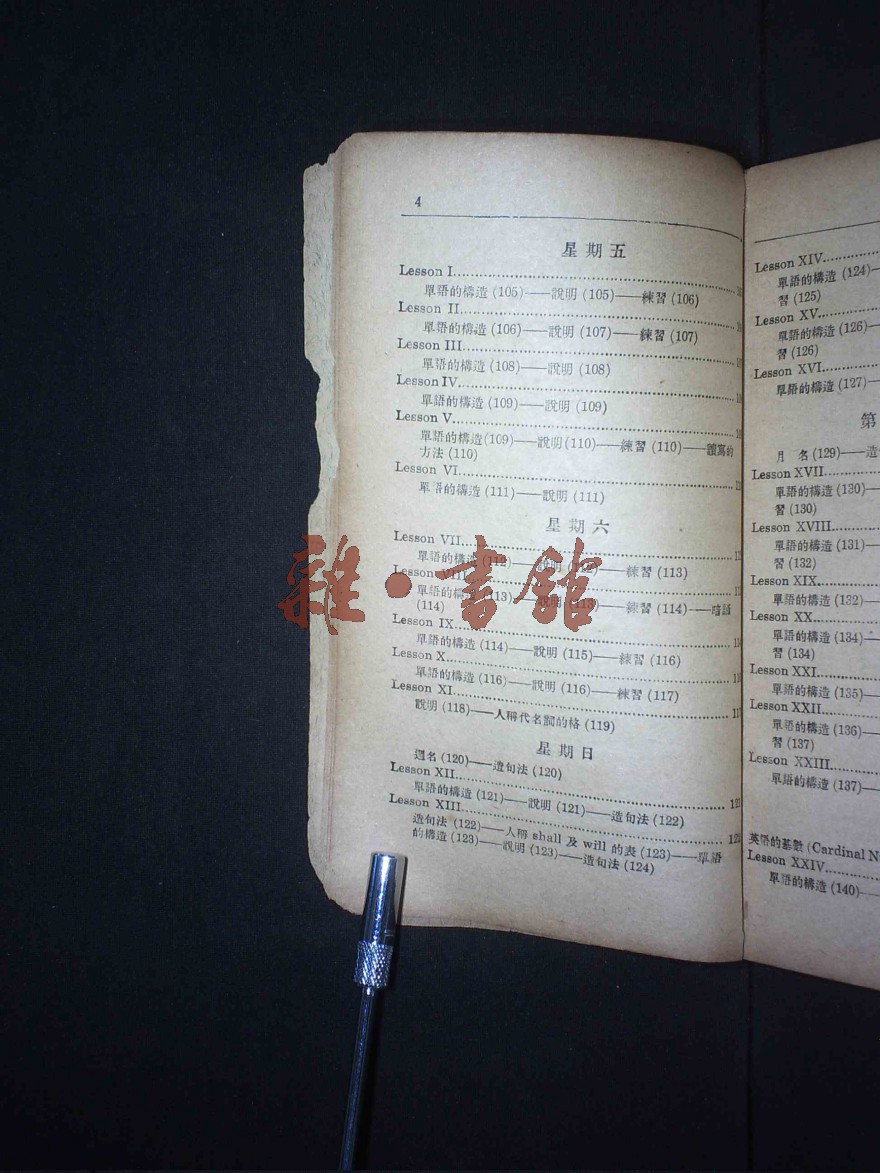 4
星期五
Lesson I
單語的構造 (105)——說明 (105)——練習 (106)
Lesson II
單語的構造 (106)——說明 (107)——練習 (107)
Lesson III
單語的構造 (108)——說明 (108)
Lesson IV
單語的構造 (109)——說明 (109)
Lesson V
單語的構造 (109)——說明 (110)——練習 (110)——讀寫的
方法 (110)
Lesson VI
單語的構造 (111)——說明 (111)
星期六
Lesson VII
單語的構造 (112)——說明 ——練習 (113)
Lesson VIII
單語的構造 (113)——說明 (113)——練習 (114)
(114)
Lesson IX
單語的構造 (114)——說明 (115)——練習 (116)
Lesson X
單語的構造 (116)——說明 (116)——練習 (117)
Lesson XI
說明 (118)——人稱代名詞的格 (119)
星期日
週名 (120)——造句法 (120)
Lesson XII 121
單語的構造 (121)——說明 (121)——造句法 (122)
Lesson XIII
造句法 (122)——人稱 shall 及 will 的表 (123)——單語
的構造 (123)——說明 (123)——造句法 (124)
Lesson XIV
單語的構造 (124)—
習 (125)
Lesson XV
單語的構造 (126)—
習 (126)
Lesson XVI
單語的構造 (127)—
第
月名 (129)——造
Lesson XVII
單語的構造 (130)—
習 (130)
Lesson XVIII
單語的構造 (131)—
習 (132)
Lesson XIX
單語的構造 (132)—
Lesson XX
單語的構造 (134)—
習 (134)
Lesson XXI
單語的構造 (135)—
Lesson XXII
單語的構造 (136)—
習 (137)
Lesson XXIII
單語的構造 (137)—
英語的基數 (Cardinal N
Lesson XXIV
單語的構造 (140)—
雜·書館